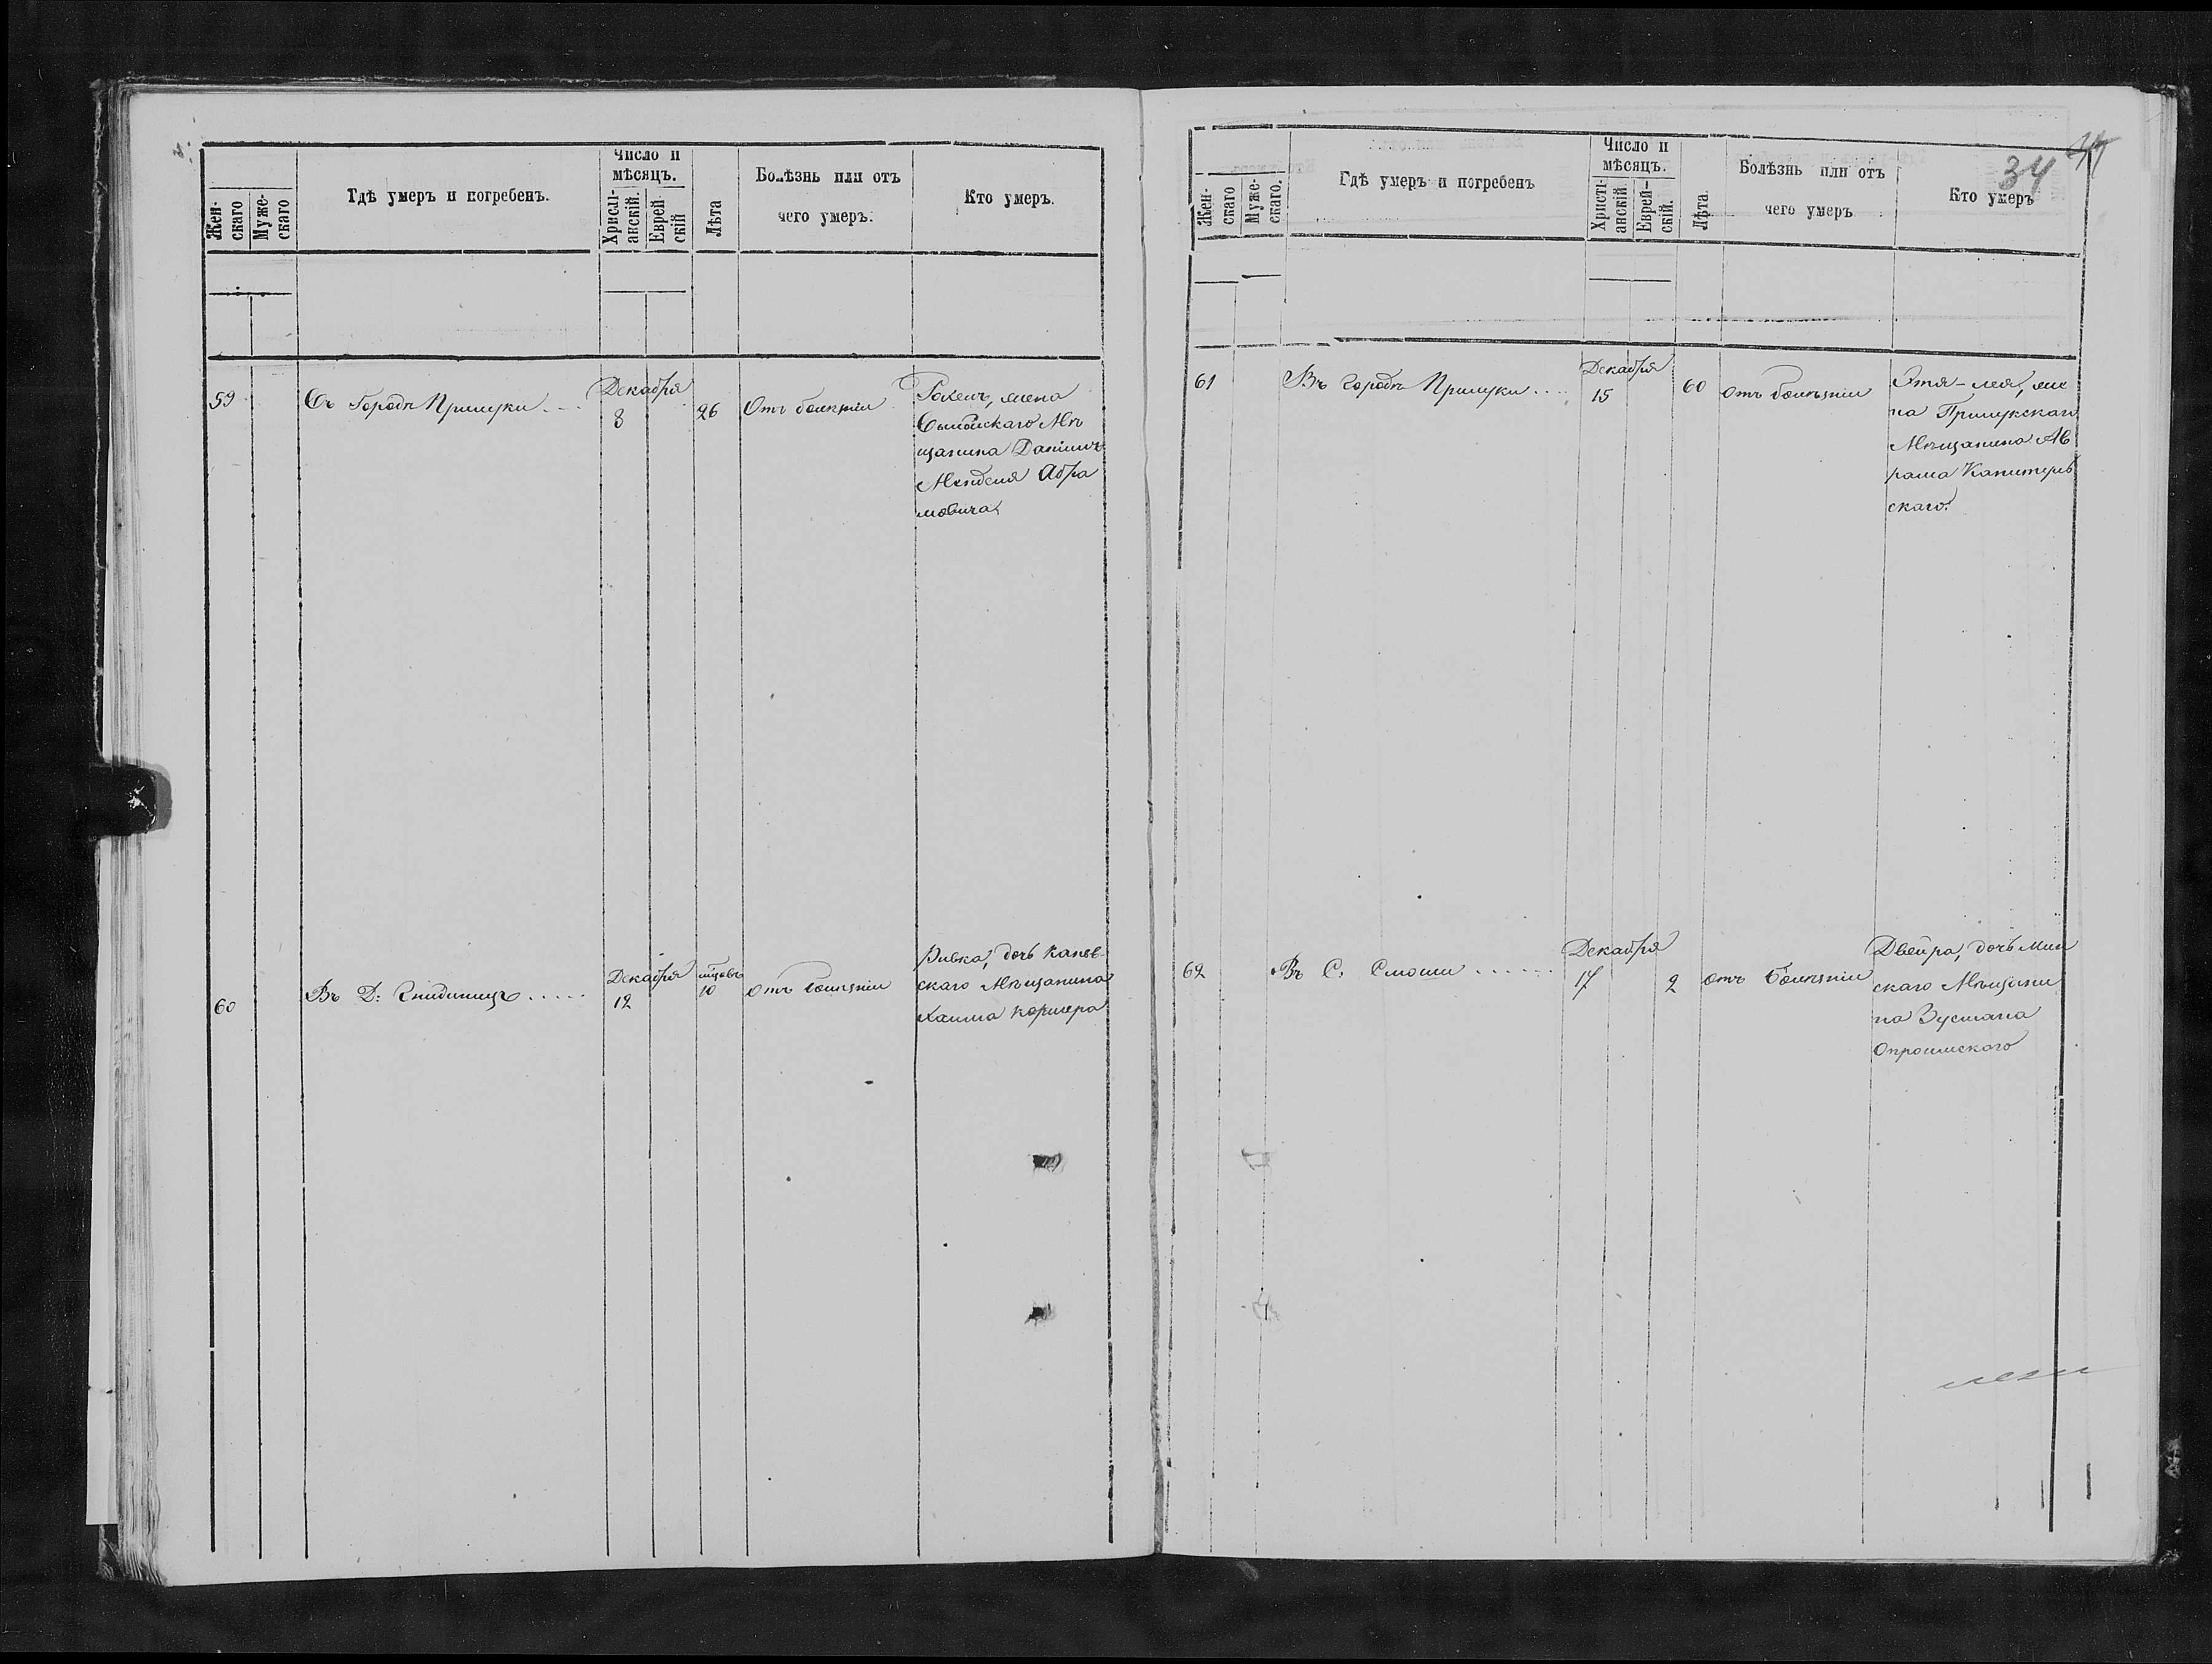 Жен-
скаго
Муже-
скаго
Гдѣ умеръ и погребенъ.
Число и
мѣсяцъ.
Христі-
анскій.
Еврей-
скій
Лѣта
Болѣзнь или отъ
чего умеръ.
Кто умеръ.
59
Въ Городѣ Прилуки
Декабря
8
26
Отъ болѣзни
Рохель, жена
Мѣ
щанина
Менделя Абра
мовича
60
Въ Д:
Декабря
12
10
отъ болѣзни
Ривка, дочь Канев-
скаго Мѣщанина
Хаима
34
Жен-
скаго
Муже-
скаго.
Гдѣ умеръ и погребенъ
Число и
мѣсяцъ.
Христі-
анскій
Еврей-
скій.
Лѣта
Болѣзнь или отъ
чего умеръ
Кто умеръ
61
Въ городѣ Прилуки
Декабря
15
60
отъ болѣзни
Этя-Лея, же
на Прилукскаго
Мѣщанина Ав
рама
скаго.
62
Въ С. Смоши
Декабря
17
2
отъ Болѣзни
Двейра, дочь Мин
скаго Мѣщани
на Зусмана